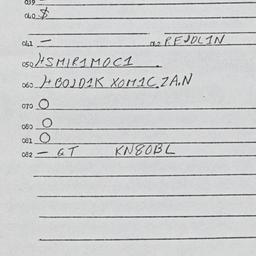 039 –
040 $
041 – 042 REJOL1N
050 HSMIR1MOC1
060 HBOJD1K XOM1C,ZA.N
070 O
080 O
081 O
082 – GT KN80BL